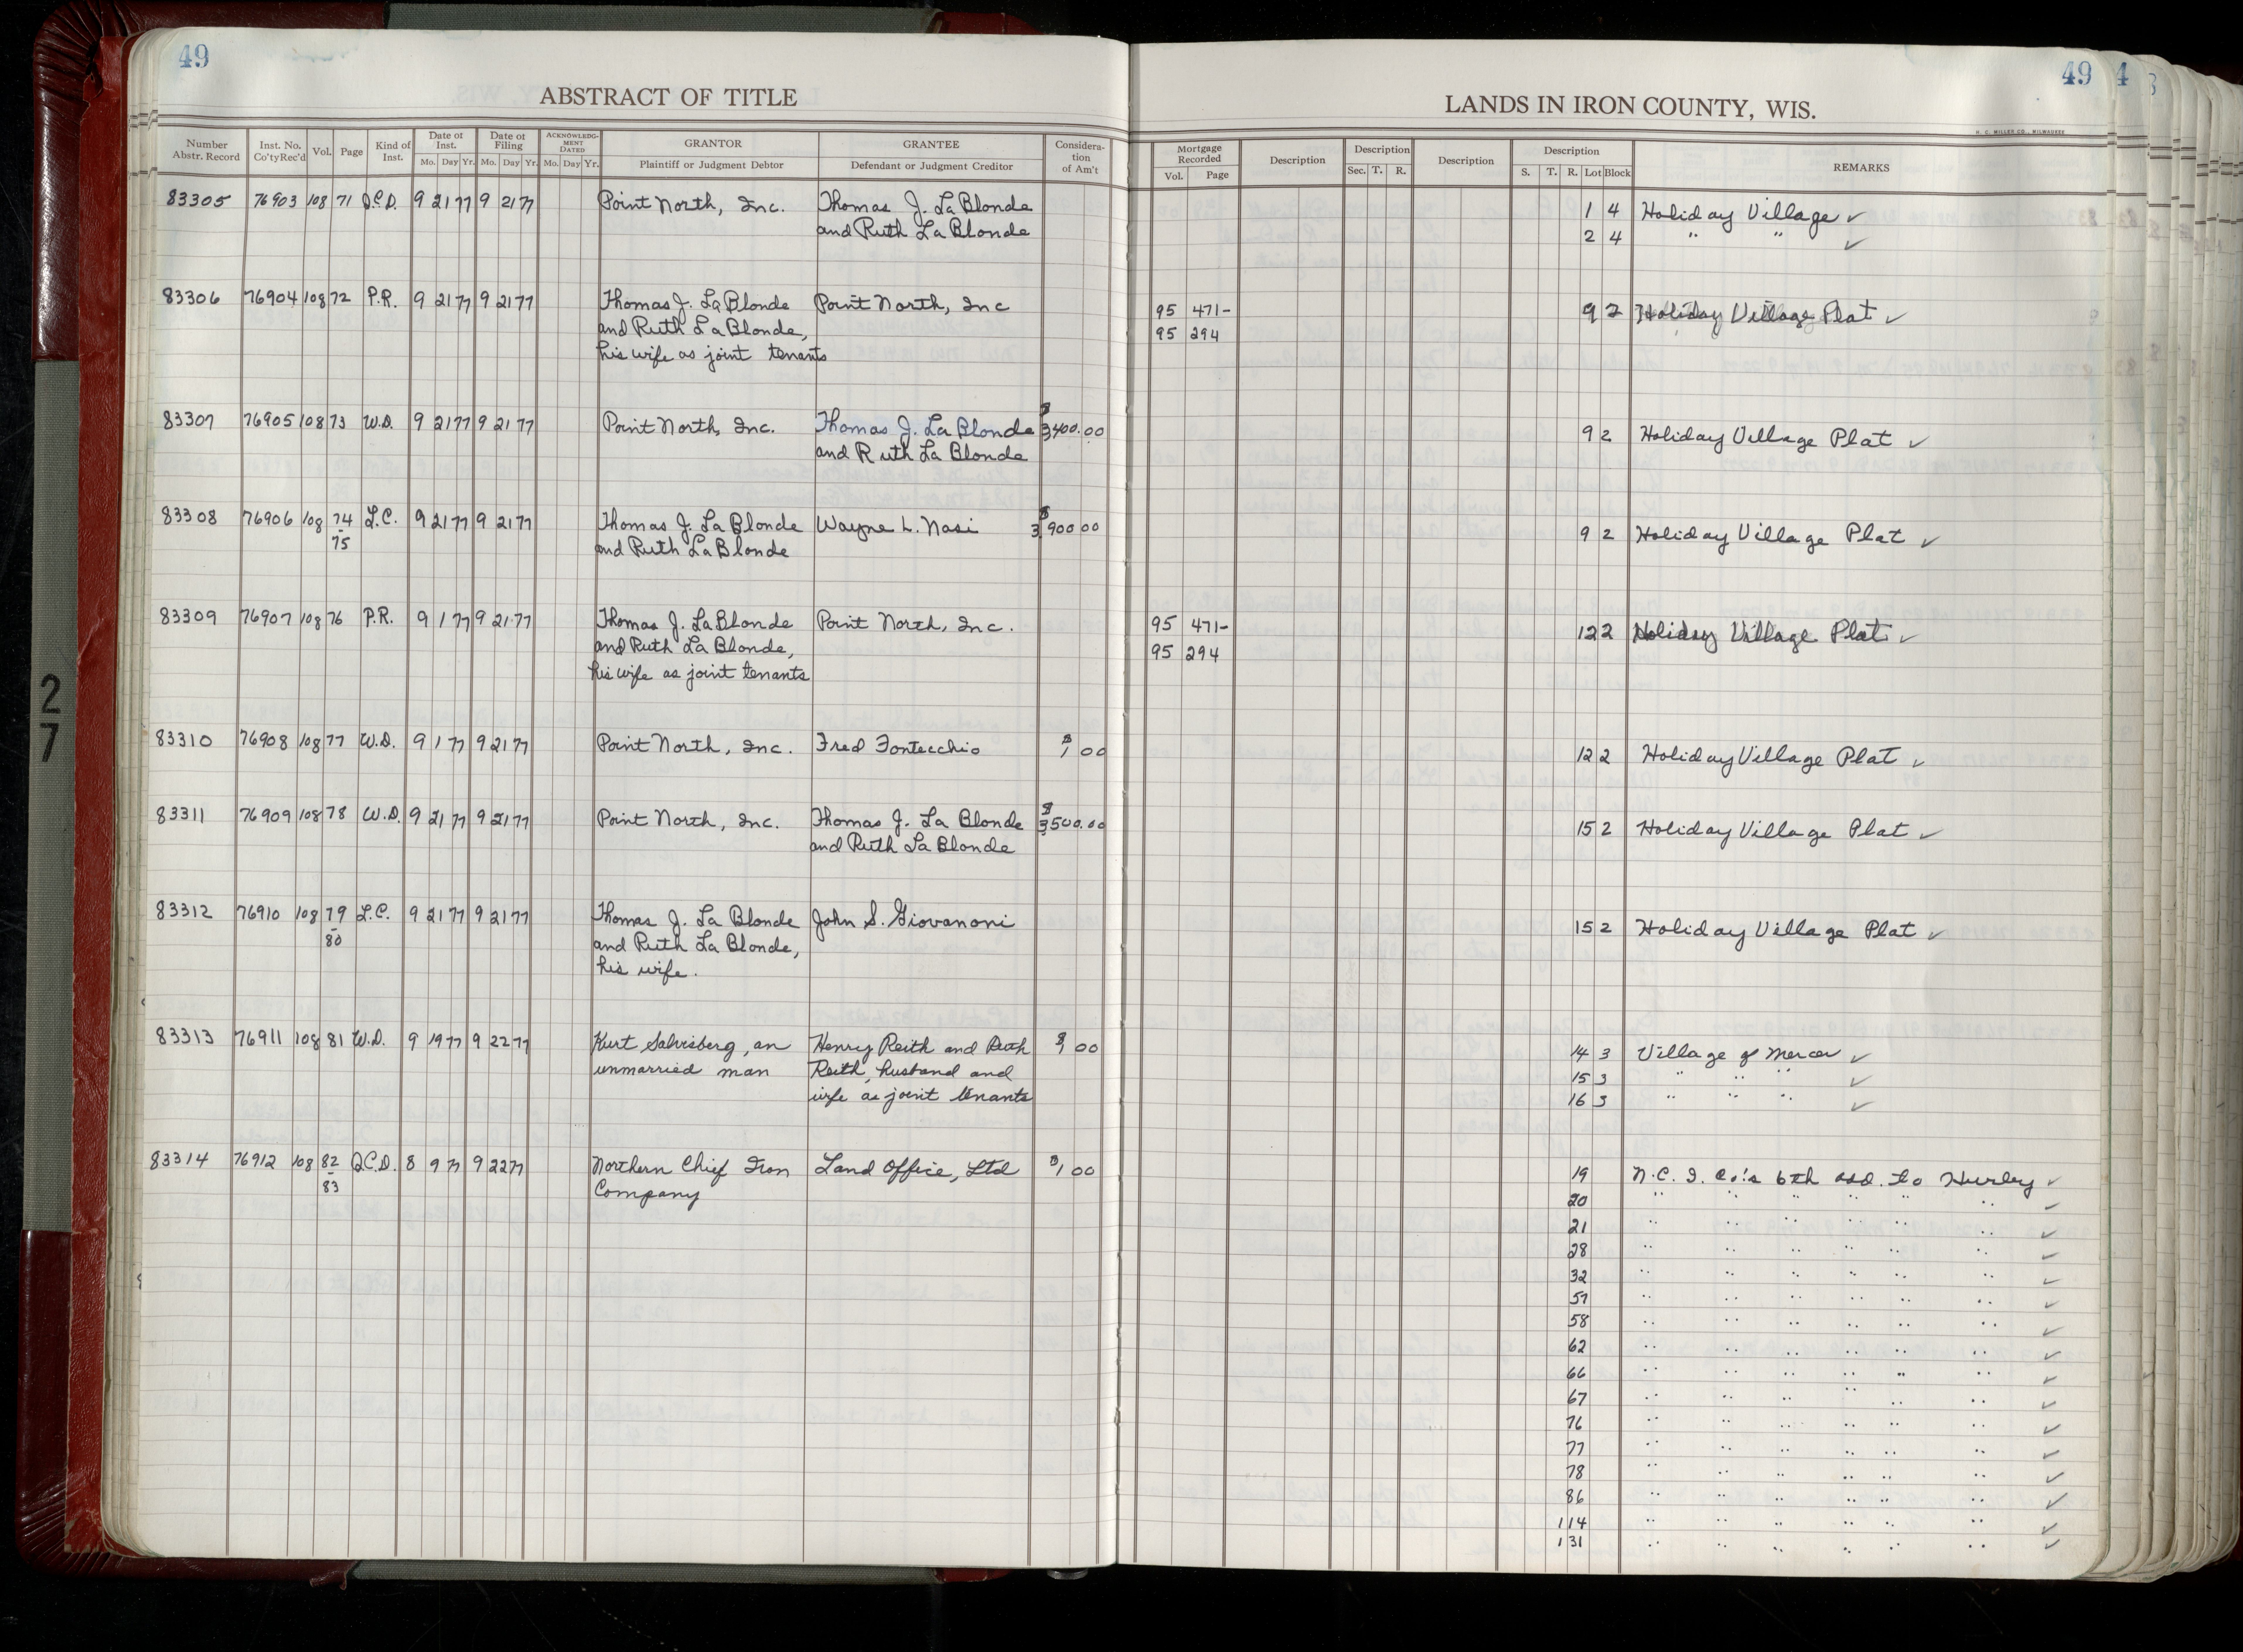 49
ABSTRACT OF TITLE
49 4
LANDS IN IRON COUNTY, WIS.
H. C. MILLER CO., MILWAUKEE
Number Abstr. Record Inst. No. Co'ty Rec'd Vol. Page Kind of Inst. Date of Inst. Mo. Day Yr. Date of Filing Mo. Day Yr. ACKNOWLEDG-MENT DATED Mo. Day Yr. GRANTOR Plaintiff or Judgment Debtor GRANTEE Defendant or Judgment Creditor Considera-tion of Am't
Mortgage Recorded Vol. Page Description Description Sec. T. R. Description Description S. T. R. Lot Block REMARKS
83305 76903 108 71 Q.C.D. 9 21 77 9 21 77 Point North, Inc. Thomas J. La Blonde 1 4 Holiday Village ✓
and Ruth La Blonde 2 4 " " ✓
83306 76904 108 72 P.R. 9 21 77 9 21 77 Thomas J. La Blonde Point North, Inc 95 471- 9 2 Holiday Village Plat ✓
and Ruth La Blonde, 95 294
his wife as joint tenants
83307 76905 108 73 W.D. 9 21 77 9 21 77 Point North, Inc. Thomas J. La Blonde $3,400.00 9 2 Holiday Village Plat ✓
and Ruth La Blonde
83308 76906 108 74 L.C. 9 21 77 9 21 77 Thomas J. La Blonde Wayne L. Nasi $3,900 00 9 2 Holiday Village Plat ✓
- 75 and Ruth La Blonde
83309 76907 108 76 P.R. 9 1 77 9 21 77 Thomas J. La Blonde Point North, Inc. 95 471- 12 2 Holiday Village Plat ✓
and Ruth La Blonde, 95 294
his wife as joint tenants
83310 76908 108 77 W.D. 9 1 77 9 21 77 Point North, Inc. Fred Fontecchio $1 00 12 2 Holiday Village Plat ✓
83311 76909 108 78 W.D. 9 21 77 9 21 77 Point North, Inc. Thomas J. La Blonde $3,500.00 15 2 Holiday Village Plat ✓
and Ruth La Blonde
83312 76910 108 79 L.C. 9 21 77 9 21 77 Thomas J. La Blonde John S. Giovanoni 15 2 Holiday Village Plat ✓
- 80 and Ruth La Blonde,
his wife.
83313 76911 108 81 W.D. 9 19 77 9 22 77 Kurt Salvisberg, an Henry Reith and Ruth $1 00 14 3 Village of Mercer ✓
unmarried man Reith, husband and 15 3 " " " ✓
wife as joint tenants 16 3 " " " ✓
83314 76912 108 82 Q.C.D. 8 9 77 9 22 77 Northern Chief Iron Land Office, Ltd $1 00 19 N.C.I. Co.'s 6th add. to Hurley ✓
- 83 Company 20 " " " " " " ✓
21 " " " " " " ✓
28 " " " " " " ✓
32 " " " " " " ✓
57 " " " " " " ✓
58 " " " " " " ✓
62 " " " " " " ✓
66 " " " " " " ✓
67 " " " " " " ✓
76 " " " " " " ✓
77 " " " " " " ✓
78 " " " " " " ✓
86 " " " " " " ✓
114 " " " " " " ✓
131 " " " " " " ✓
27